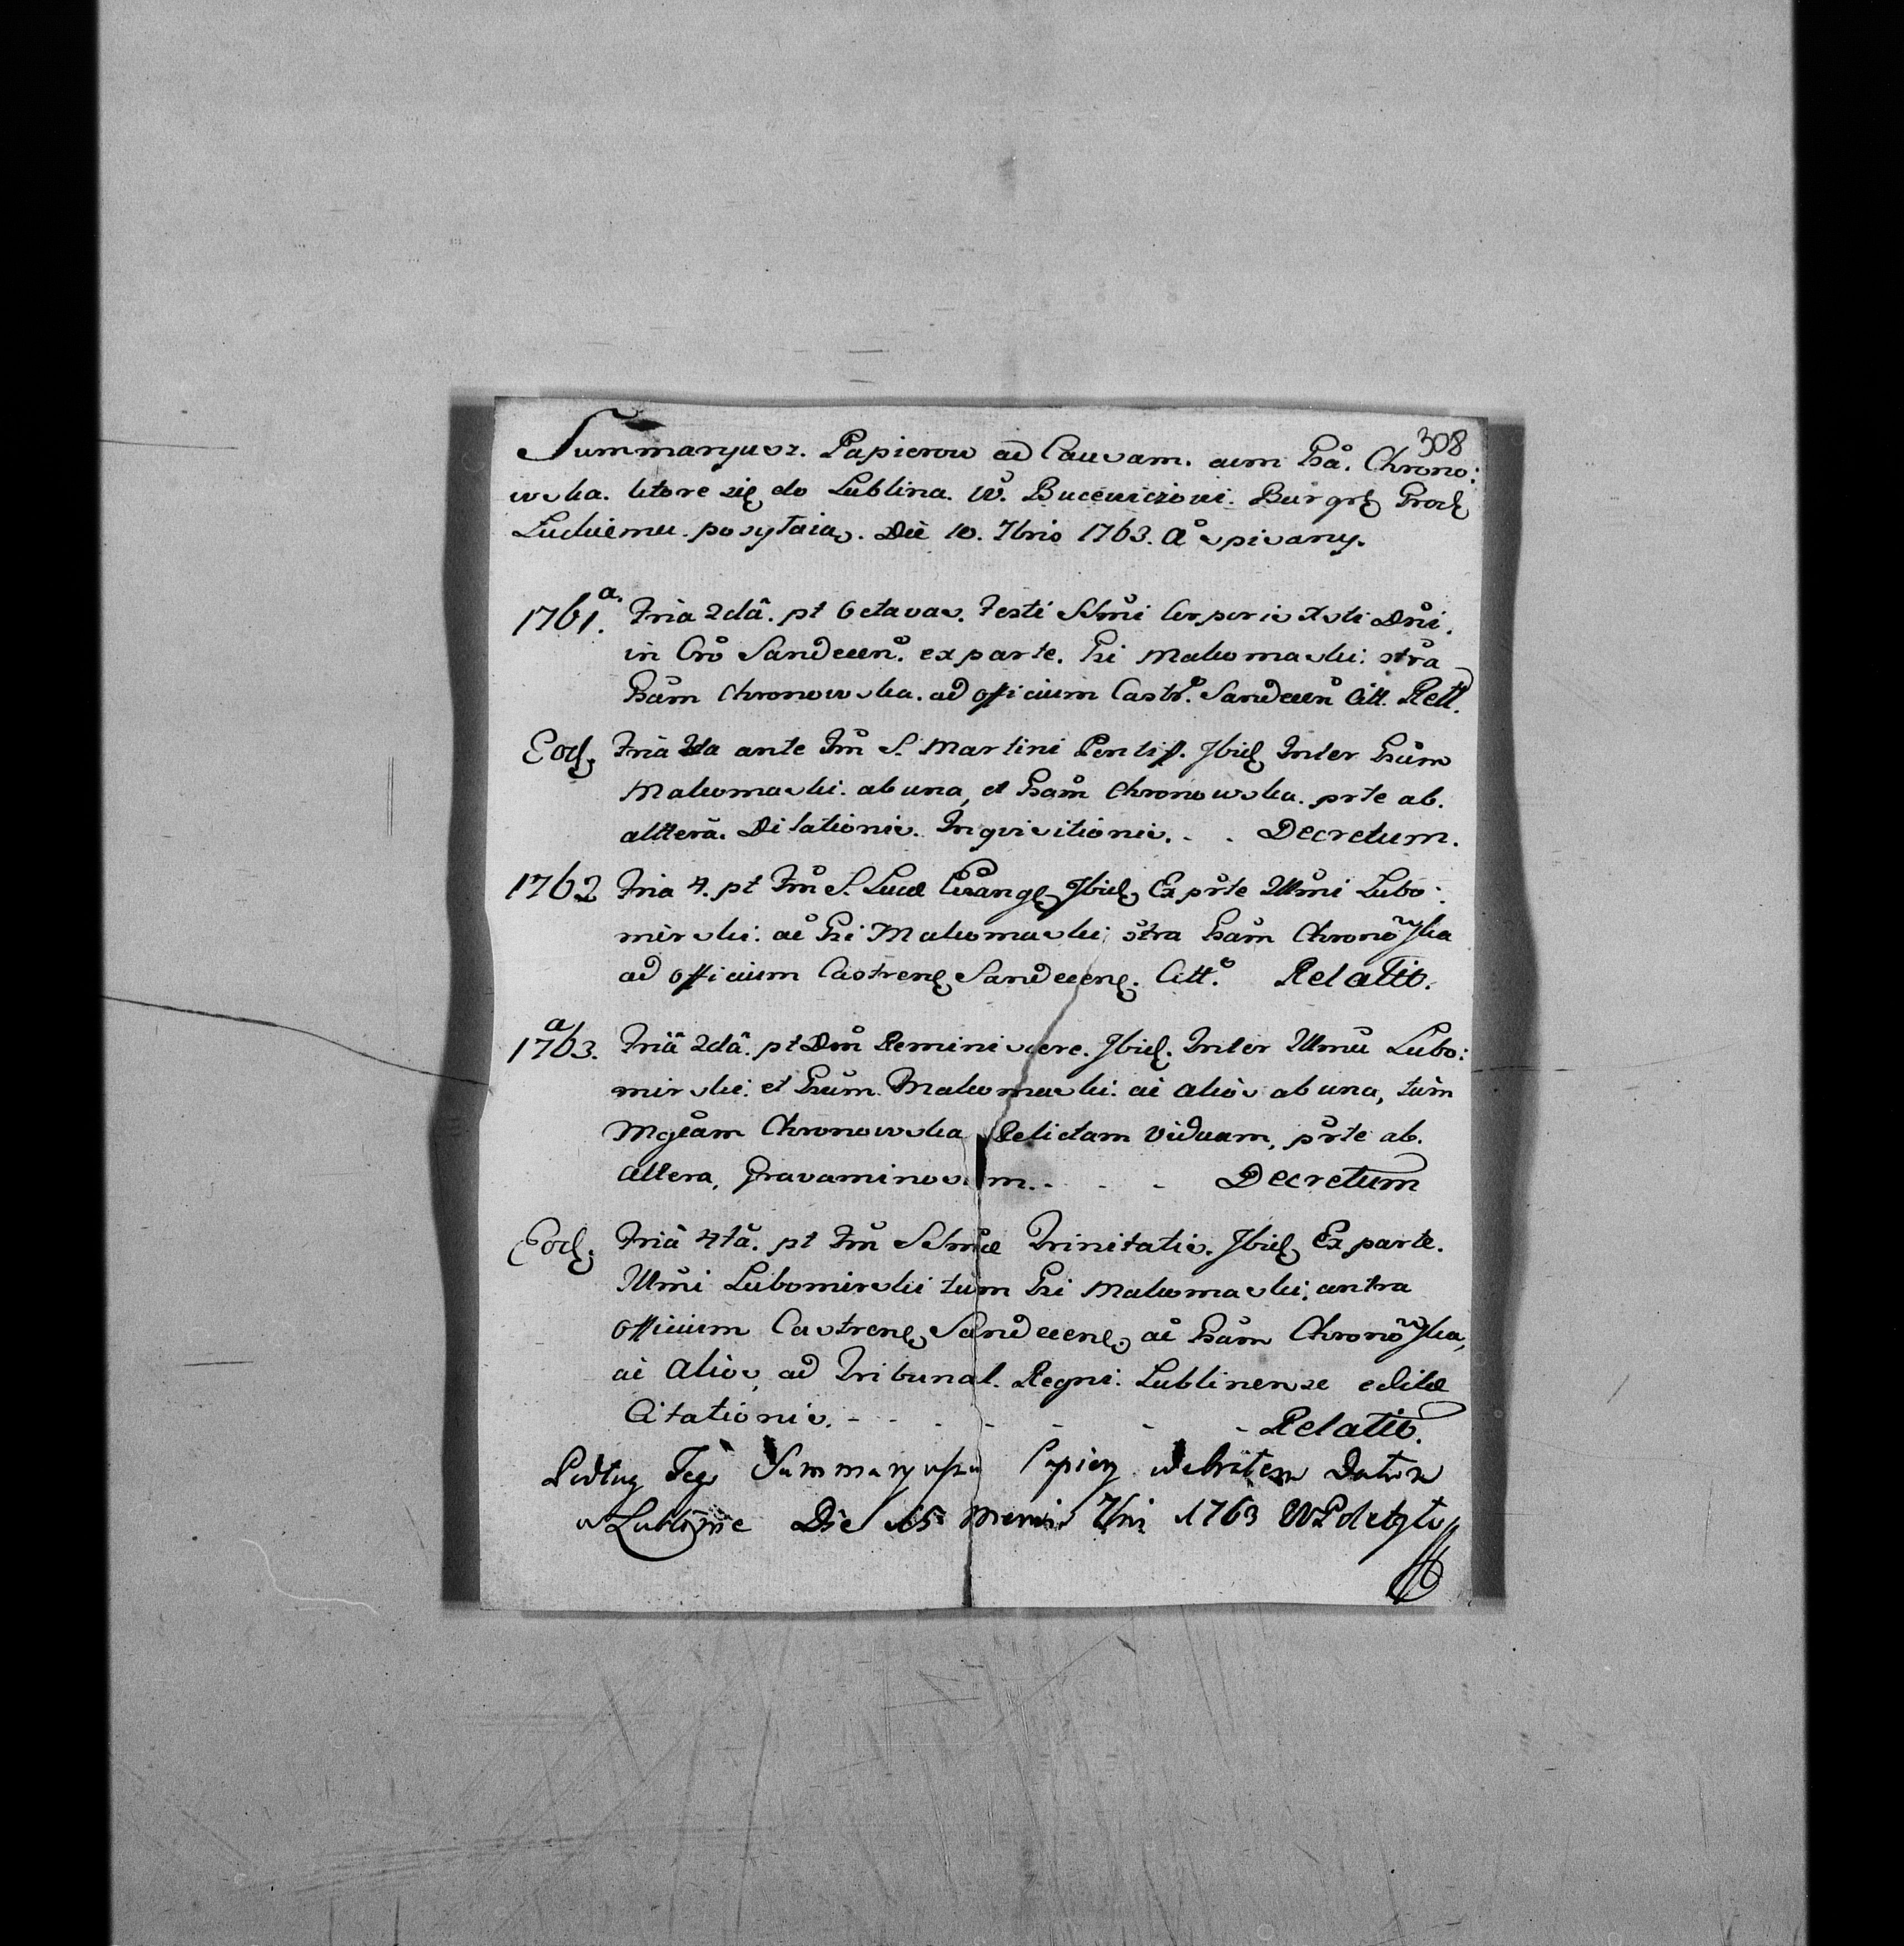 308
Summaryusz. Papierow ad Causam. cum Gsa. Chrono:
wska. ktore się do Lublina. W. Bucewiczowi. Burgrę Grod
Luckiemu posyłaia. Die 10. 7bris 1763. A spisany.
1761. a. Fria 2dâ. pt Octavas. Festi SSmi Corporis Xsti Dñi.
in Cro Sandecen. ex parte. Gsi Makomaski: ctra
Gsam Chronowska. ad officium Castr. Sandecen Citt. Rell.
Eod. Fria 2da ante Fm S. Martini Pontif. Ibid Inter Gsum
Makomaski. ab una, et Gsam Chronowska. prte ab.
alttera. Dilationis. Inqvisitionis. - . Decretum.
1762 Fria 4. pt Fm S. Lucæ Evang Ibid Ex prte Illmi Lubo:
mirski: ac Gsi Makomaski ctra Gsam Chronowska
ad officium Castren Sandecen. Citt. Relatio.
1763. a Friâ 2dâ. pt Dm Reminiscere. Ibid. Inter Illmu Lubo:
mirski: et Gsum Makomaski. ac alios ab una, tum
Mgcam Chronowska Relictam Viduam, prte ab.
altera, Gravaminosum. - - - Decretum
Eod. Friâ 4tâ. pt Fm SSmæ Trinitatis. Ibid Ex parte.
Illmi Lubomirski tum Gsi Makomaski: contra
officium Castren Sandecen ac Gsam Chronowska,
ac Alios, ad Tribunal. Regni. Lublinense editæ
Citationis. - - - - - - Relatio.
Podług Teg Summaryuszu Papiery odebrałem Datum
w Lublinie Die 15 Mensis 7bris 1763